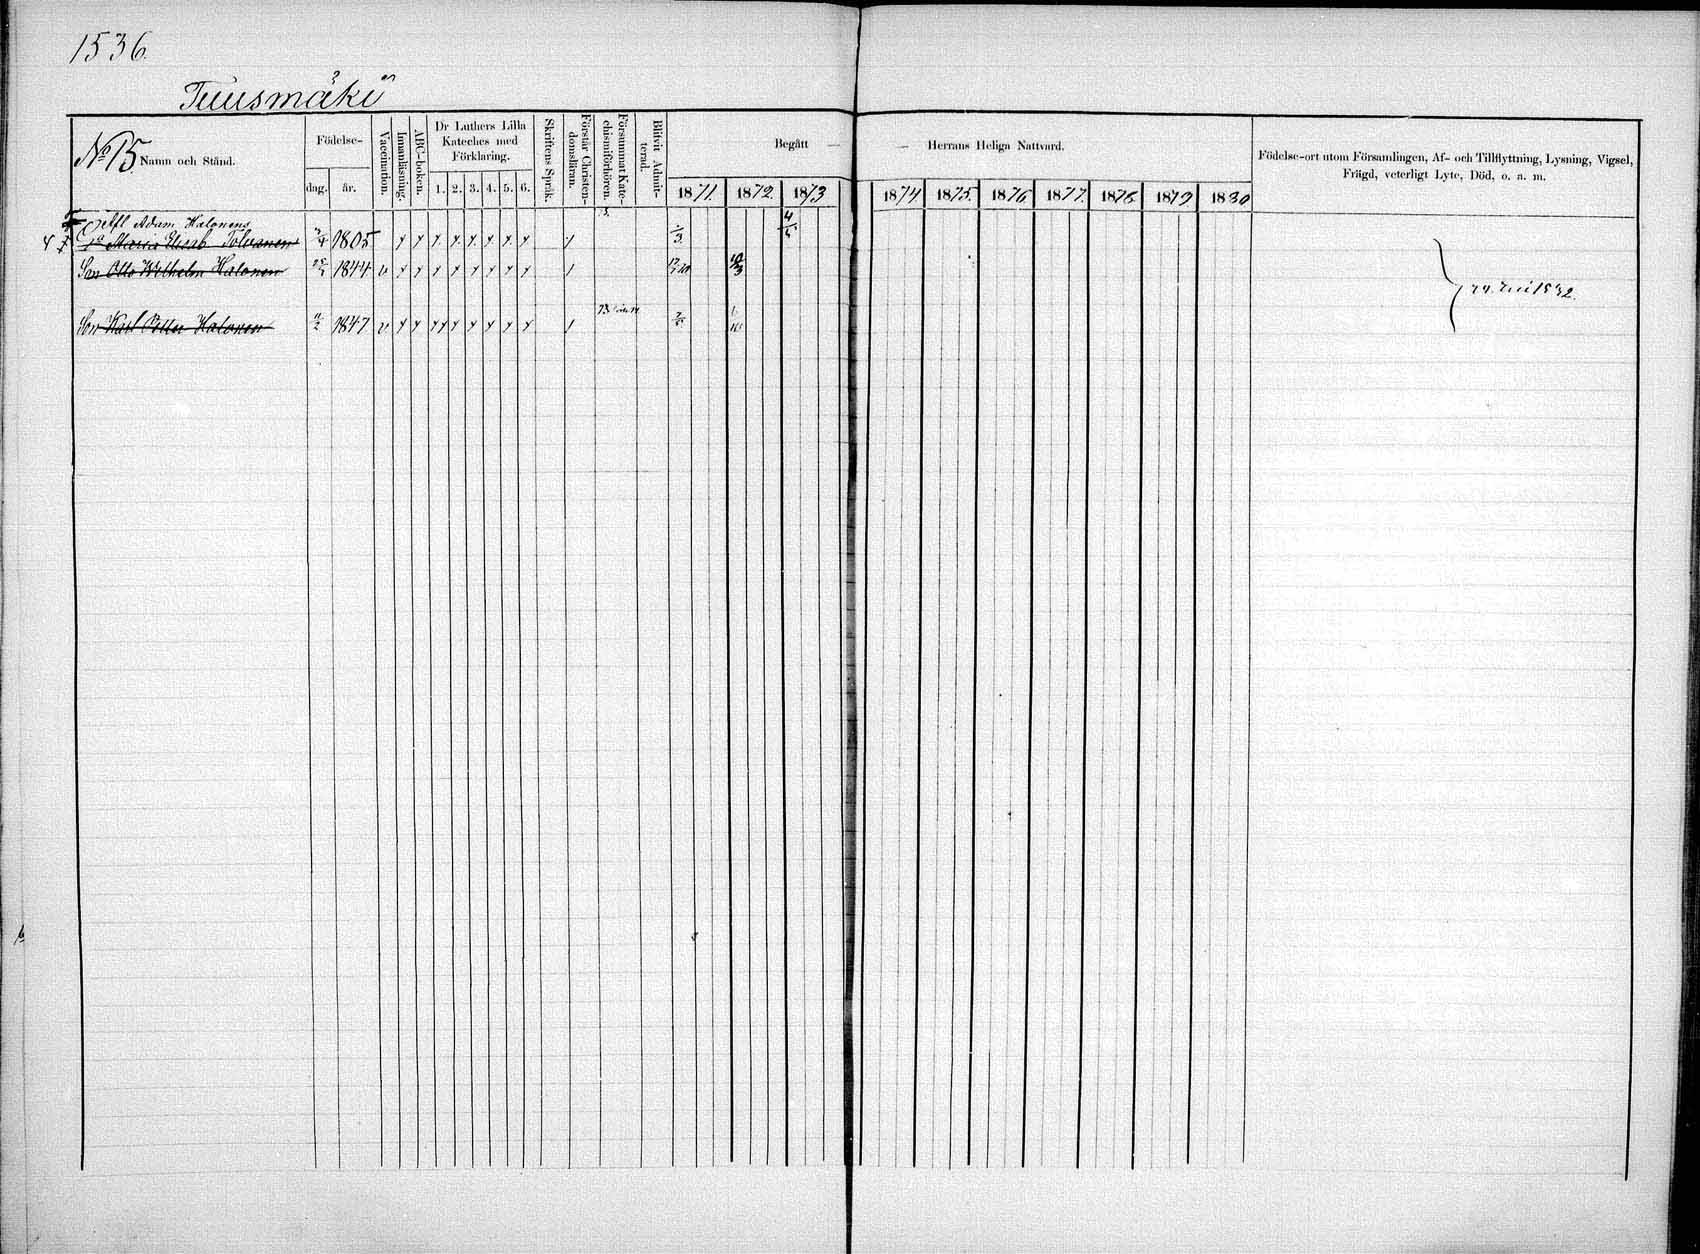 1536.
Tuusmäki
No 15 Namn och Stånd.
Födelse-
dag. år.
Vaccination.
Innanläsning.
ABC-boken.
Dr Luthers Lilla
Kateches med
Förklaring.
1. 2. 3. 4. 5. 6.
Skriftens Språk.
Förstår Christen-
domsläran.
Försummat Kate-
chismiförhören.
Blifvit Admit-
terad.
Begått — — Herrans Heliga Nattvard.
1871. 1872. 1873 1874 1875. 1876 1877. 1878 1879 1880
Födelse-ort utom Församlingen, Af- och Tillflyttning, Lysning, Vigsel,
Frägd, veterligt Lyte, Död, o. a. m.
Adam Halonens
Maria Elisab Tolvanen 1805
Son Otto Wilhelm Halonen 1844
Son Karl Petter Halonen 11/2 1847